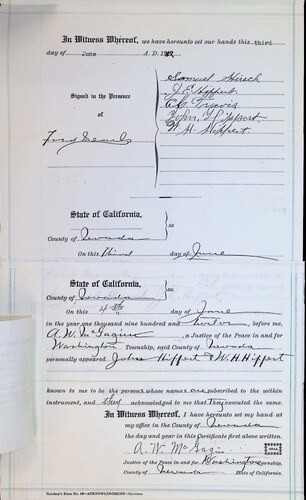 In Witness Whereof, we have hereunto set our hands this third
day of June A. D. 1912
Samuel Hirsch
Signed in the Presence
J. E. Hippert
of
E. C. Travis
John Hippert
W. H. Hippert
State of California,
ss
County of Nevada
On this Third day of June
State of California,
ss
County of Nevada
On this 4th day of June
in the year one thousand nine hundred and twelve, before me,
A. W. McGagin, a Justice of the Peace in and for
Washington Township, said County of Nevada
personally appeared John Hippert & W. H. Hippert
known to me to be the persons whose names are subscribed to the within
instrument, and they acknowledged to me that they executed the same.
In Witness Whereof, I have hereunto set my hand at
my office in the County of Nevada
the day and year in this Certificate first above written.
A. W. McGagin
Justice of the Peace in and for Washington Township
County of Nevada State of California.